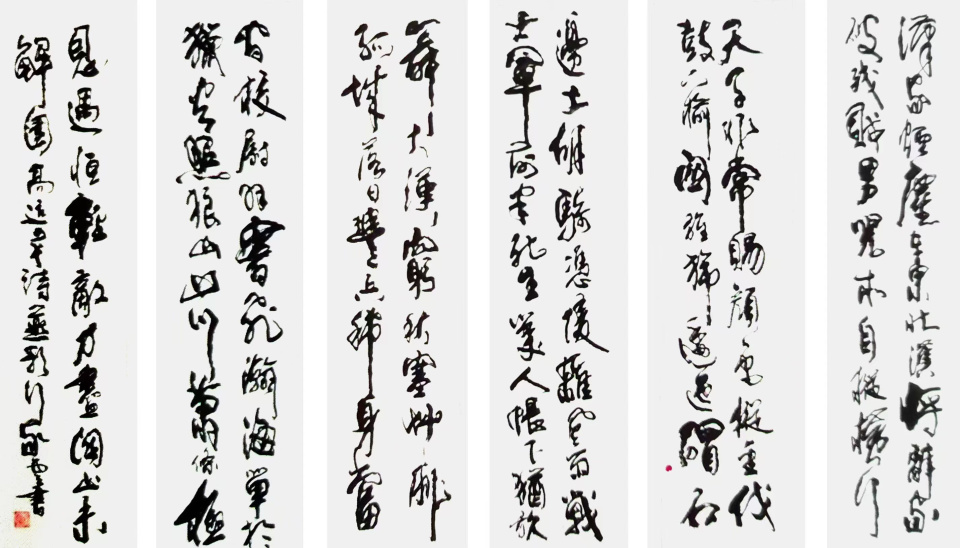 漢家煙塵在東北漢將辭家
破殘賊男兒本自縱橫行
天子非常賜顏色縱金伐
鼓下榆關旌旆逶迤碣石
間校尉羽書飛瀚海單於
獵火照狼山山川蕭條極
邊土胡騎憑陵雜風雨戰
士軍前半死生美人帳下猶歌
舞大漠窮秋塞草腓
孤城落日鬥兵稀身當
恩遇恒輕敵力盡關山未
解圍高適詩燕歌行書